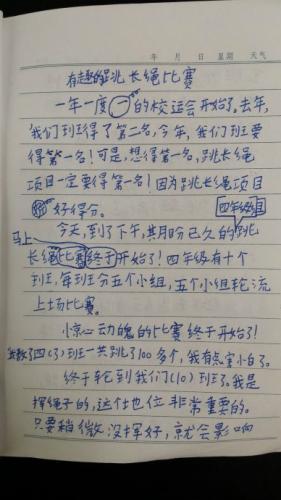 年 月 日 星期 天气
有趣的跳长绳比赛
一年一度㊀的校运会开始了。去年,
我们班得了第二名,今年,我们班要
得第一名!可是,想得第一名,跳长绳
项目一定要得第一名!因为跳长绳项目
好得分。
四年级组
今天,到了下午,其月盼已久的跳
马上
长绳比赛终于开始了!四年级有十个
班,每班分五个小组,五个小组轮流
上场比赛。
惊心动魄的比赛终于开始了!
数了四(3)班一共跳了100多个,我有点害怕了。
终于轮到我们(10)班了。我是
挥绳子的,这位非常重要的。
只要稍微没挥好,就会影响